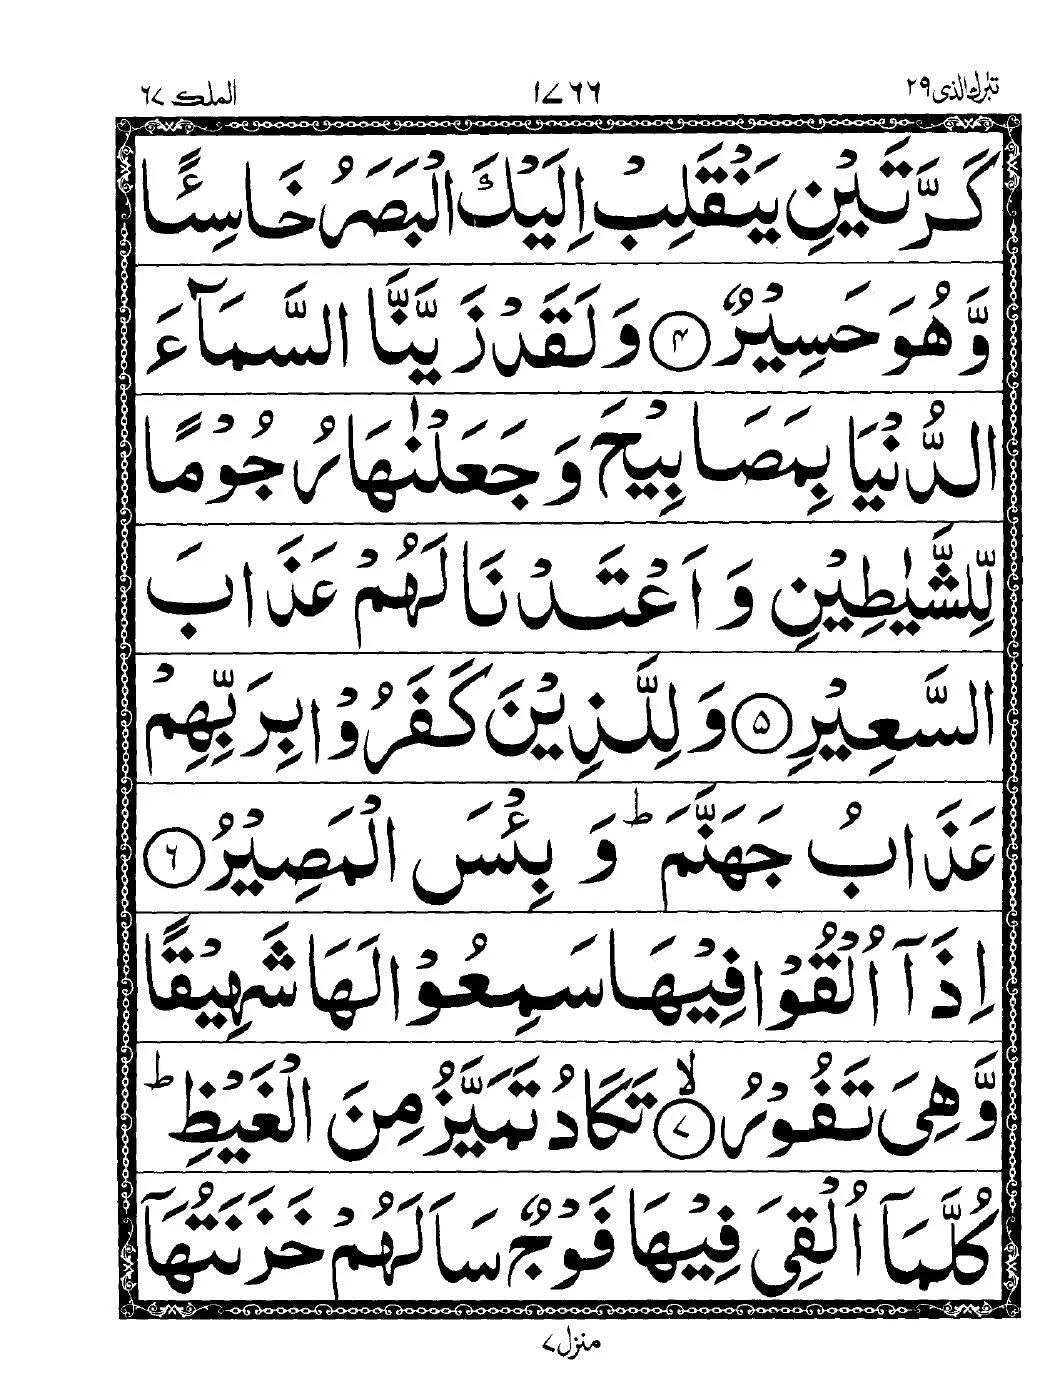 تبٰرك الذی ۲۹ ۱۷۶۶ الملك ۶۷
كَرَّتَيْنِ يَنْقَلِبْ اِلَيْكَ الْبَصَرُ خَاسِئًا
وَّهُوَ حَسِيْرٌ ۴ وَلَقَدْ زَيَّنَّا السَّمَآءَ
الدُّنْيَا بِمَصَابِيْحَ وَجَعَلْنٰهَا رُجُوْمًا
لِّلشَّيٰطِيْنِ وَاَعْتَدْنَا لَهُمْ عَذَابَ
السَّعِيْرِ ۵ وَلِلَّذِيْنَ كَفَرُوْا بِرَبِّهِمْ
عَذَابُ جَهَنَّمَ ؕ وَبِئْسَ الْمَصِيْرُ ۶
اِذَآ اُلْقُوْا فِيْهَا سَمِعُوْا لَهَا شَهِيْقًا
وَّهِىَ تَفُوْرُ ۙ ۷ تَكَادُ تَمَيَّزُ مِنَ الْغَيْظِ ؕ
كُلَّمَآ اُلْقِىَ فِيْهَا فَوْجٌ سَاَلَهُمْ خَزَنَتُهَآ
منزل ۷